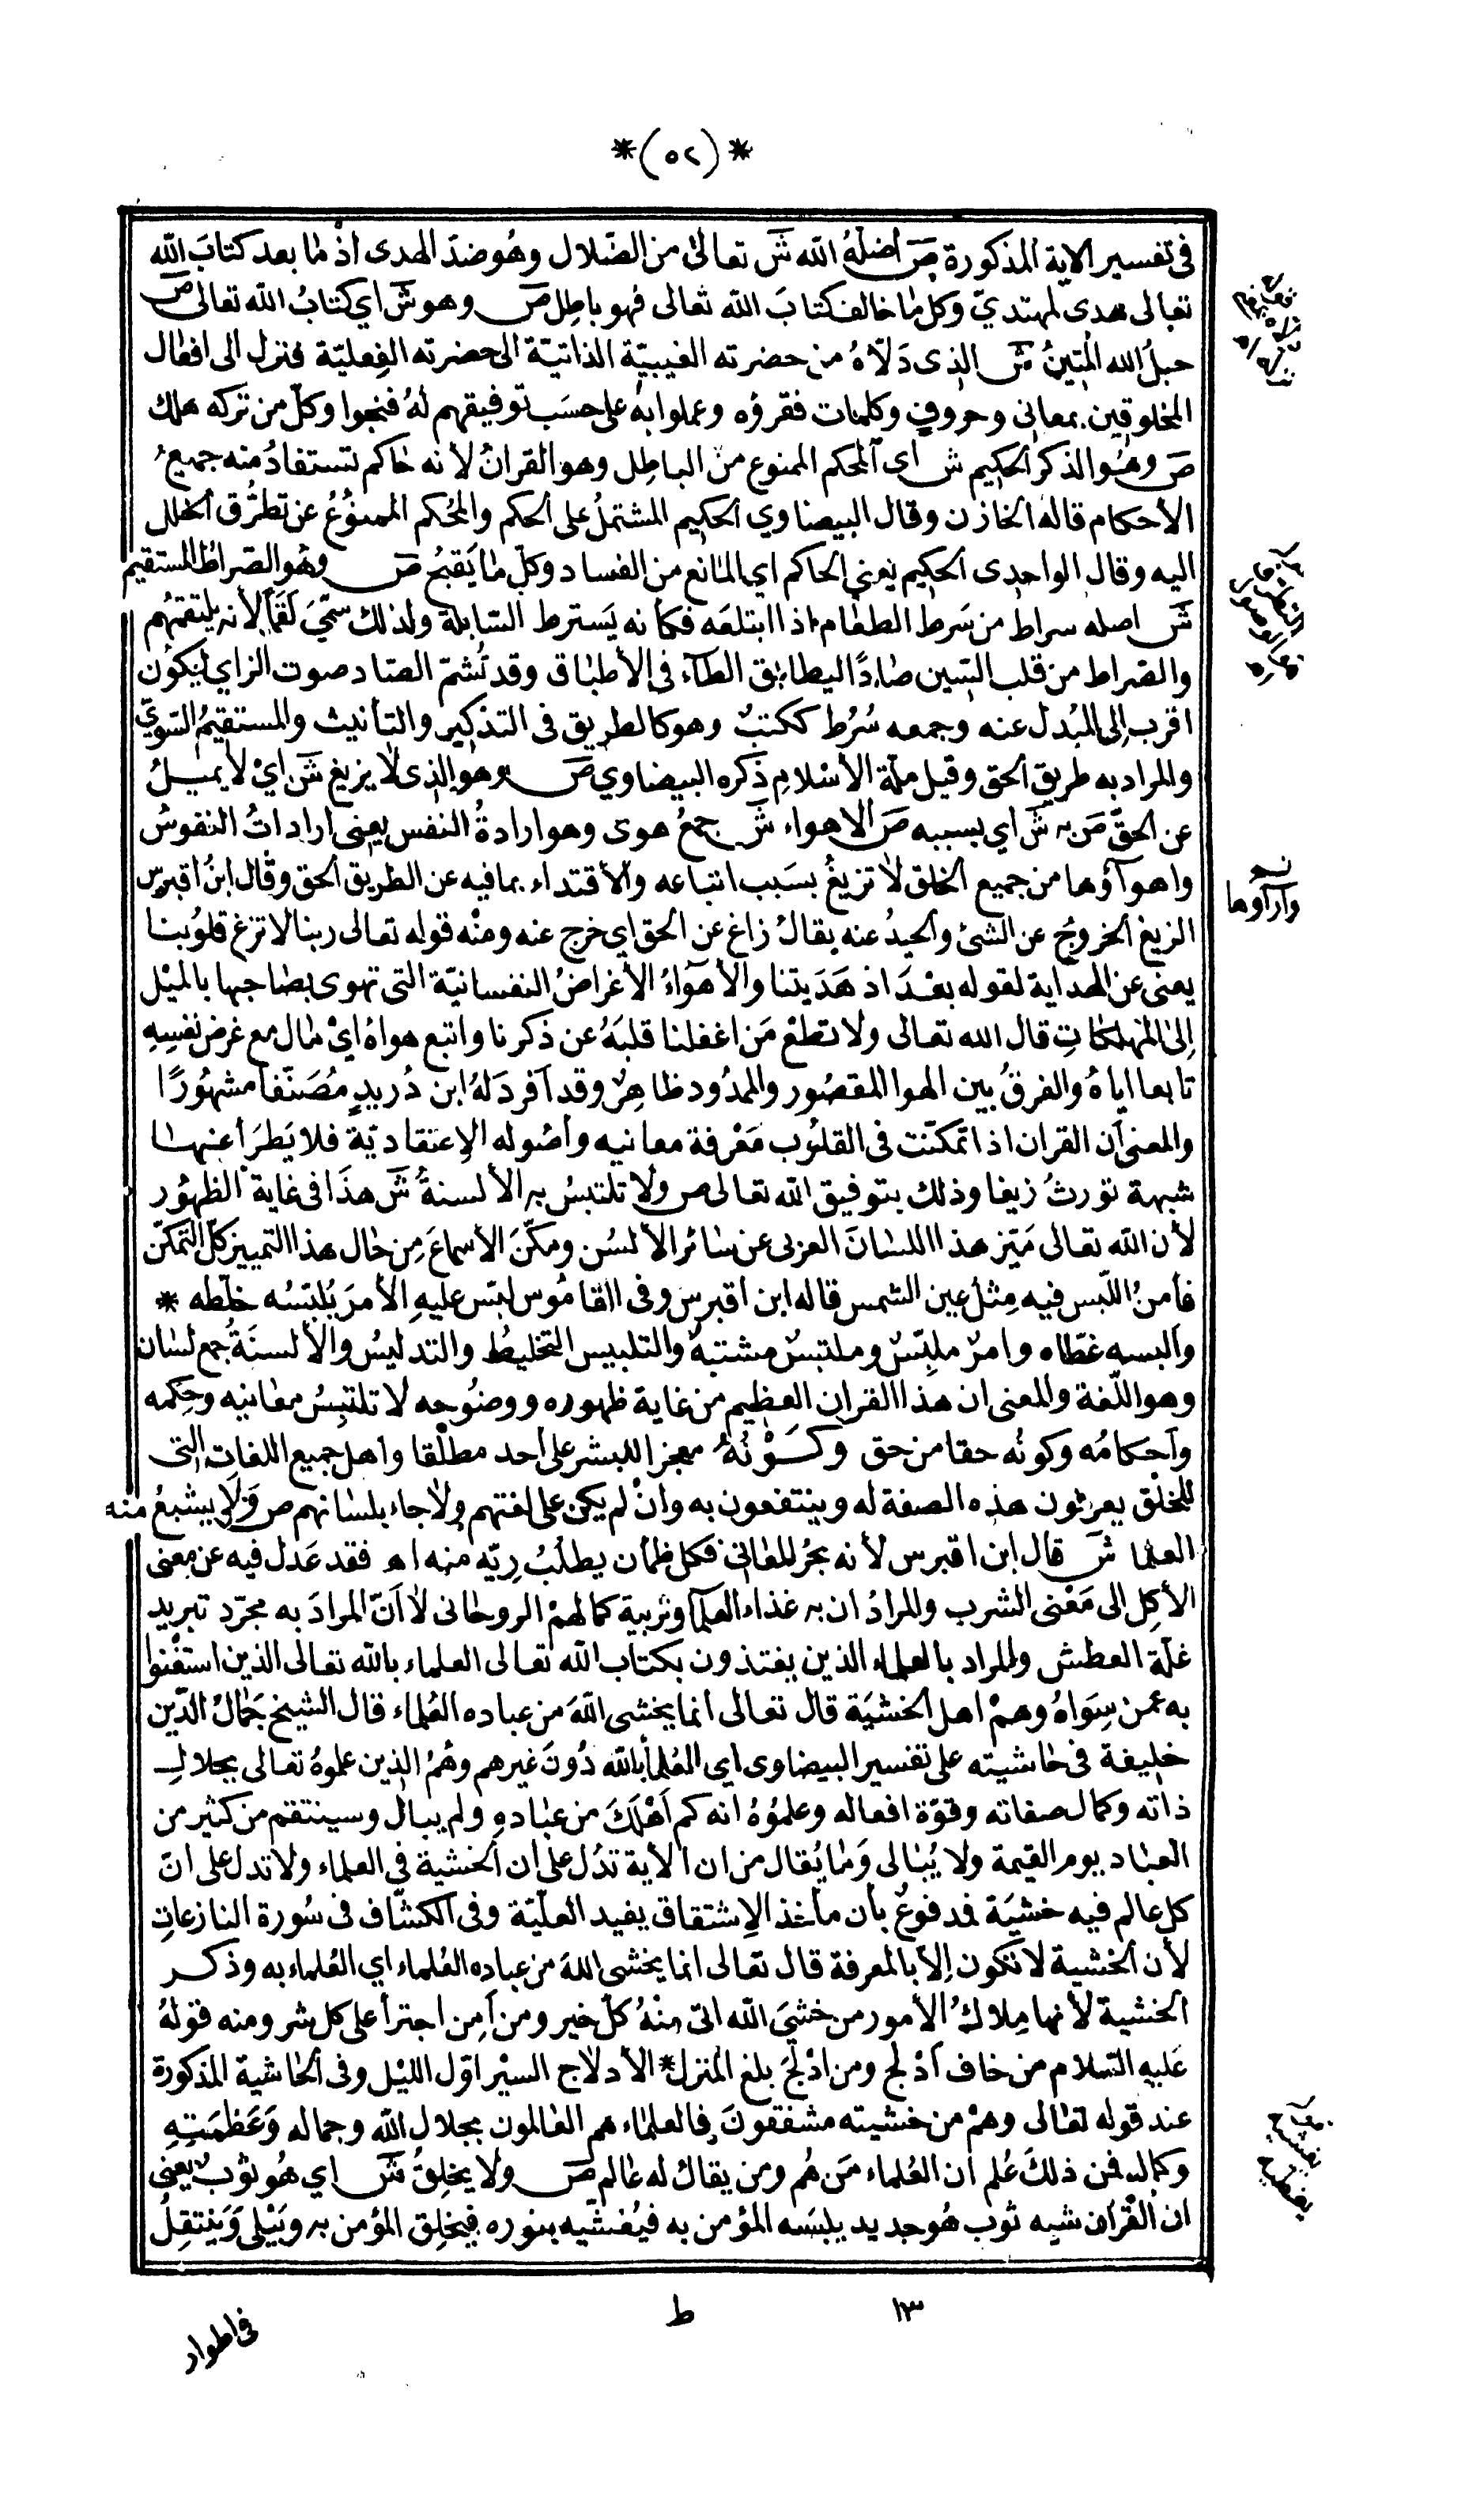 *(٥٢)*
فى تفسير الاية المذكورة ص اضلهُ الله ش تعالىٰ من الضلال وهُو ضدّ الهدى اذْ ما بعد كتابَ الله
تعالى هدى لمهتديّ وكل ما خالف كتابَ الله تعالى فهو باطِل ص وهو ش اي كتابُ الله تعالى ص
حبلُ الله المتينُ ش الذى دَلّاهُ من حضرته الغيبيّة الذاتيّة الى حضرته الفِعليّة فنزل الى افعال
المخلوقين بمعانى وحروفٍ وكلمات فقرؤه وعملوا بهُ على حسَب توفيقهم لهُ فنجوا وكلّ من تركه هلك
ص وهُو الذكر الحكيم ش اى المحكم الممنوع من الباطِل وهو القرانُ لأنه حاكم تستفادُ منه جميعُ
الأحكام قاله الخازن وقال البيضاوي الحكيم المشتملُ على الحكم والمُحكم الممنوُعُ عن تطرُّق الخلل
اليه وقال الواحدى الحكيم يعنى الحاكم اي المانع من الفساد وكلّ ما يَقبُح ص وهُو الصراطُ المستقيم
ش اصله سراط من سَرط الطعَام اذا ابتلعَه فكأنه يَسترط السّابلة ولذلك سمّيَ لَقَمًا لأنه يلتقمُهم
والصراط من قلب السّين صَادًا ليطابق الطآء فى الأطباق وقد تُشمّ الصّاد صوت الزاي ليكوُن
اقرب الى المُبْدل عنه وجمعه سُرُط ككتبٌ وهو كالطريق فى التذكير والتأنيث والمستقيمُ السّويّ
والمراد به طريق الحق وقيل ملة الأسْلامِ ذكره البيضاوي ص وهو الذى لا يزيغ ش ايْ لا يميلُ
عن الحقّ ص به ش اي بسببه ص الاهواء ش جمعُ هوى وهو ارادةُ النفس يعنى ارادات النفوسُ
واهوآؤها من جميع الخلق لا تزيغُ بسَبب اتباعه والأقتداء بما فيه عن الطريق الحق وقال ابنُ اقبرس
الزيغ الخروجُ عن الشئ والحيدُ عنه يقالُ زاغ عن الحق اي خرج عنه ومنْه قوله تعالى ربنا لا تزغ قلوُبنا
يعنى عن الهداية لقوله بعْدَ اذ هَدَيتنا والأهوآءُ الأغراضُ النفسانيّة التى تهوى بصَاحبها بالميْل
الىٰ المهلكاتِ قال الله تعالى ولا تطعْ مَن اغفلنا قلبَهُ عن ذكرنا واتبع هواهُ ايْ مال مع غرض نفسِهِ
تابعا اياهُ والفرقُ بين الهوا المقصُور والممدُود ظاهرٌ وقد اَفردَ لهُ ابن دُريدٍ مُصَنّفا مشهُورًا
والمعنىٰ ان القران اذا تمكّنت فى القلُوب مَعْرفة معانيه وأصُوله الإعتقاديّة فلا يَطرَأ عنها
شبهة تورثُ زيغا وذلك بتوفيق الله تعالى ص ولا تلتبسُ به الألسنةُ ش هذَا فى غاية الظهُور
لأن الله تعالى مَيّز هذا اللسَانَ العربى عن سائر الألسُن ومكّنَ الأسماعَ مِن حَال هذا التمييز كلّ التمكّن
فأمنُ اللّبس فيه مِثلُ عين الشمس قاله ابن اقبرس وفى القامُوس لبّس عليهِ الأمرَ يُلبّسُه خلّطه *
وألبسه غطّاه وامرٌ ملبّسٌ وملتبسٌ مشتبهٌ والتلبيس التخليطُ والتدليسُ والألسنَةُ جمع لسَان
وهو اللّغة والمعنى ان هذا القران العظيم من غاية ظهوره ووضوُحه لا تلتبِسُ معَانيه وحِكمه
واَحكامُه وكونُه حقا من حق وكَوْنُهُ معجزا للبشر على أحد مطلْقا واهل جميع اللغات التى
للخلْق يعرفون هذه الصفة له وينتفعون به وانْ لم يكن على لغتهم ولا جاء بلسَانهم ص وَلَا يشبعُ منه
العلما ش قال ابن اقبرس لأنه بحرُ المعَانى فكل ظمأن يطلبُ رِيّه منه اهـ فقد عَدل فيه عن معنى
الأكِل الى مَعْنى الشرب والمرادُ ان به غذاء العلمآ وتربية كمالهمْ الروحانى لا اَنّ المرادَ به مجرّد تبريد
غلّة العطش والمراد بالعلماء الذين يغتذون بكتاب الله تعالى العلماء بالله تعالى الذين استغْنوا
به عمن سِوَاهُ وهمْ اهل الخشيَة قال تعالى انما يخشى اللهَ من عباده العُلماء قال الشيخ جَمَالُ الدّين
خليفة فى حَاشيته على تفسير البيضاوى اي العُلمآ بالله دُونَ غيرهم وهُمُ الذين علموهُ تعالى بجلال
ذاته وكمال صفاته وقوّة افعاله وعلموُهُ انه كم اَهْلَكَ من عبَادهِ ولم يبال وسينتقم من كثير من
العبَاد يوم القيمة ولا يُبَالى وَمَا يُقال من ان الأية تدُل على ان الخشية فى العلماء ولا تدل على انّ
كل عالم فيه خشيَة فمدفوعٌ بأن مأخذ الإشتقاق يفيد العلّيّة وفى الكشّاف فى سُورة النازعاتِ
لأن الخشية لا تكون الا بالمعرفة قال تعالى انما يخشى اللهَ من عباده العُلماء اي العُلماء به وذكر
الخشية لأنها مِلاكُ الأمور من خشيَ الله اتى منهُ كلّ خير ومن اَمِن اجترأ على كل شر ومنه قولهُ
عَليهِ السَّلام من خاف اَدْلج ومن ادْلجَ بلغ المنزل * الأدلاج السيْر اوّل الليْل وفى الحَاشية المذكورة
عند قوله تعَالى وهمْ من خشيته مشفقونَ فالعلماء هم العَالمون بجلال الله وجماله وَعَظمَتِهِ
وكماله فمن ذلكَ عُلم ان العُلماء مَن هُم ومن يقالُ له عَالم ص ولا يخلِقُ ش اي هُو ثوبٌ يعنى
ان القْران شبه ثوب هُو جديد يلبسَه المؤمن به فيُغشيه بنوره فيخلِق المؤمن به ويَبْلى وَيَنتقِلُ
نسـ
وآرآوها
١٣
ط
فى اطوار